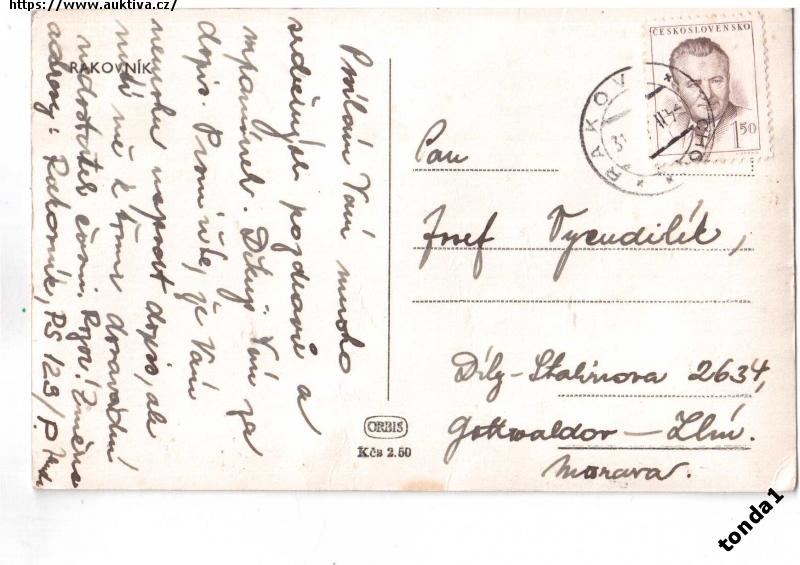 https://www.auktiva.cz/
RAKOVNÍK
Posílám Vám mnoho
srdečných pozdravů a
vzpomínek. Děkuji Vám za
dopis. Promiňte, že Vám
nemohu napsat dopis, ale
nutí mě k tomu doravadní
nedostatek času. Pozor! Změna
adresy: Rakovník, PS 129/P.
ČESKOSLOVENSKO
1.50
RAKOV
31
Pan
Josef Vycudilík,
Díly-Stalinova 2634,
Gottwaldov-Zlín.
Morava.
ORBIS
Kčs 2.50
tonda1